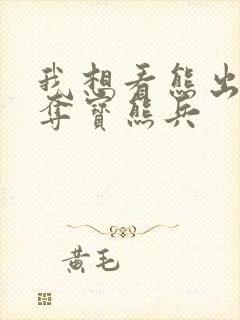 我想看熊出
夺宝熊兵
黄毛